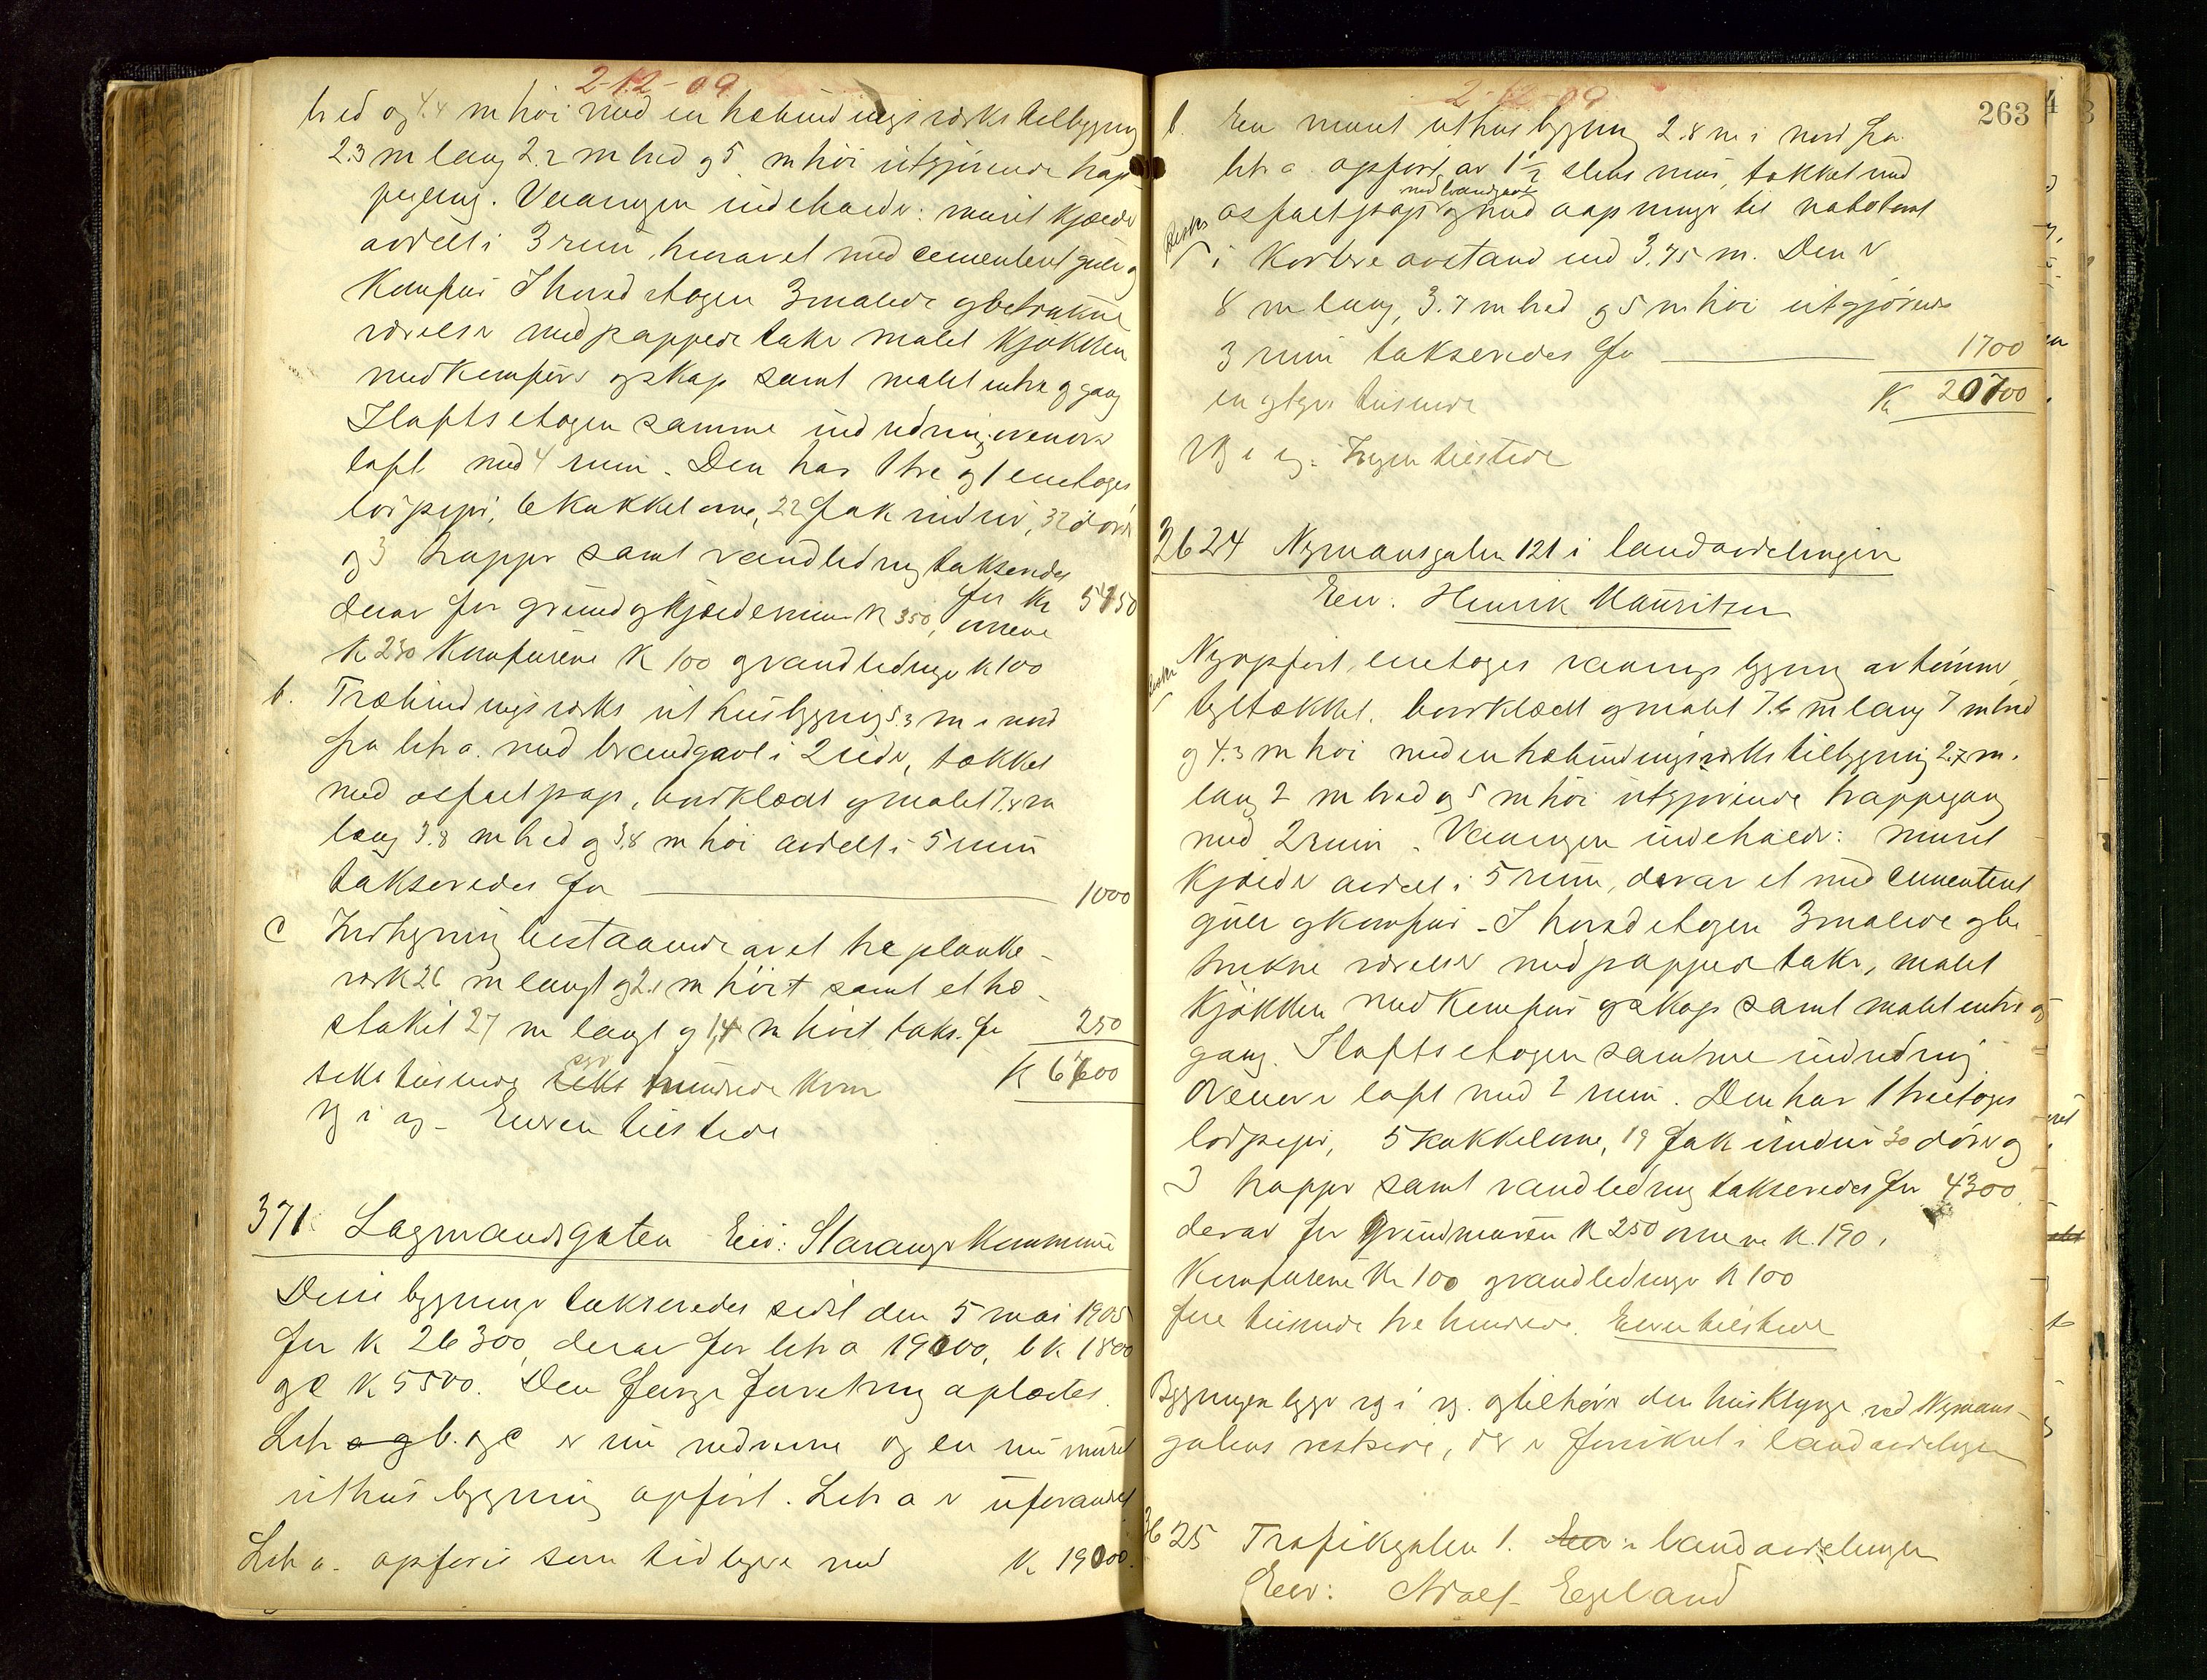 2-12-09
bred og 4.4 m höi med en træbindingsværks tilbygning
2.3 m lang 2.2 m bred og 5 m höi utgjörende trap-
pegang. Vaaningen indeholder: muret kjælder
avdelt i 3 rum, hvorav et med cementert gulv og
komfur I hovedetagen 3 malede og betrukne
værelser med pappede take malet kjökken
med komfur og skap samt malet entre og gang
I loftsetagen samme indredning ovenover
loft med 4 rum. Den har 1 tre og 1 enetages
lodpipe, 6 kakkelovne, 22 fak vinduer, 32 dörer
og 3 trapper samt vandledning takseredes
for kr 5450
derav for grund og kjældermur kr 350, ovnene
K 250 Komfurene K 100 og vandledninger K 100
b. Træbindingsværks uthusbygning 5.3 m i nord
fra litr a. med brandgavl i 2 sider, tækket
med asfaltpap, bordklædt og malet 7.8 m
lang 3.8 m bred og 3.8 m höi avdelt i 5 rum
takseredes for 1000
c Indhegning bestaaende av et træ planke-
værk 26 m langt og 2.1 m höit samt et træ-
stakit 27 m langt og 1,4 m höit taks. for 250
seks tusinde syv hundrede kroner K 6700
Vg i vg - Eieren tilstede
371 Lagmandsgaten Eier: Stavanger Kommune
Disse bygninger takseredes sidst den 5 mai 1905
for K 26300, derav for litr a 19000, b K 1800
og c K 5500. Den forrige forretning oplæstes.
Litr b. og c er nu nedrevne og en ny muret
uthusbygning opfört. Litr a er uforandret
Litr a. opföres som tidligere med K 19000.
263
2-12-09
b. En muret uthusbygning 2.8 m i nord fra
litr a opfört av 1½ stens mur, tækket med
med brandgavl
asfaltpap og med aapninger til nabotomt
i kortere avstand end 3.75 m. Den er
8 m lang, 3.7 m bred og 5 m höi utgjörende
3 rum takseredes for 1700
en og tyve tusinde K 20700
Vg i vg. Ingen tilstede
3624 Nymansgaten 121 i landavdelingen
Eier. Henrik Mauritzen
Nyopfört enetages vaaningsbygning av tömmer,
tegltækket, bordklædt og malet 7.6 m lang 7 m bred
og 4.3 m höi med en træbindingsværks tilbygning 2.7 m.
lang 2 m bred og 5 m höi utgjörende trappegang
med 2 rum. Vaaningen indeholder: muret
kjælder avdelt i 5 rum, derav et med cementert
gulv og komfur. I hovedetagen 3 malede og be-
trukne værelser med pappede take, malet
kjökken med komfur og skap samt malet entre og
gang. I loftsetagen samme indredning
Ovenover loft med 2 rum. Den har 1 treetages
lodpipe, 5 kakkelovne, 19 fak vinduer 30 dörer og
3 trapper samt vandledning takseredes for 4300
derav for Grundmuren K 250 ovnene K 190,
Komfurene Kr 100 og vandledninger K 100
fire tusinde tre hundrede. Eieren tilstede
Bygningen ligger vg i vg. og tilhörer den husklynge ved Nymans-
gatens vestside, der er forsikret i landavdelingen
3625 Trafikgaten 1. i landavdelingen
Eier: Adolf Egeland